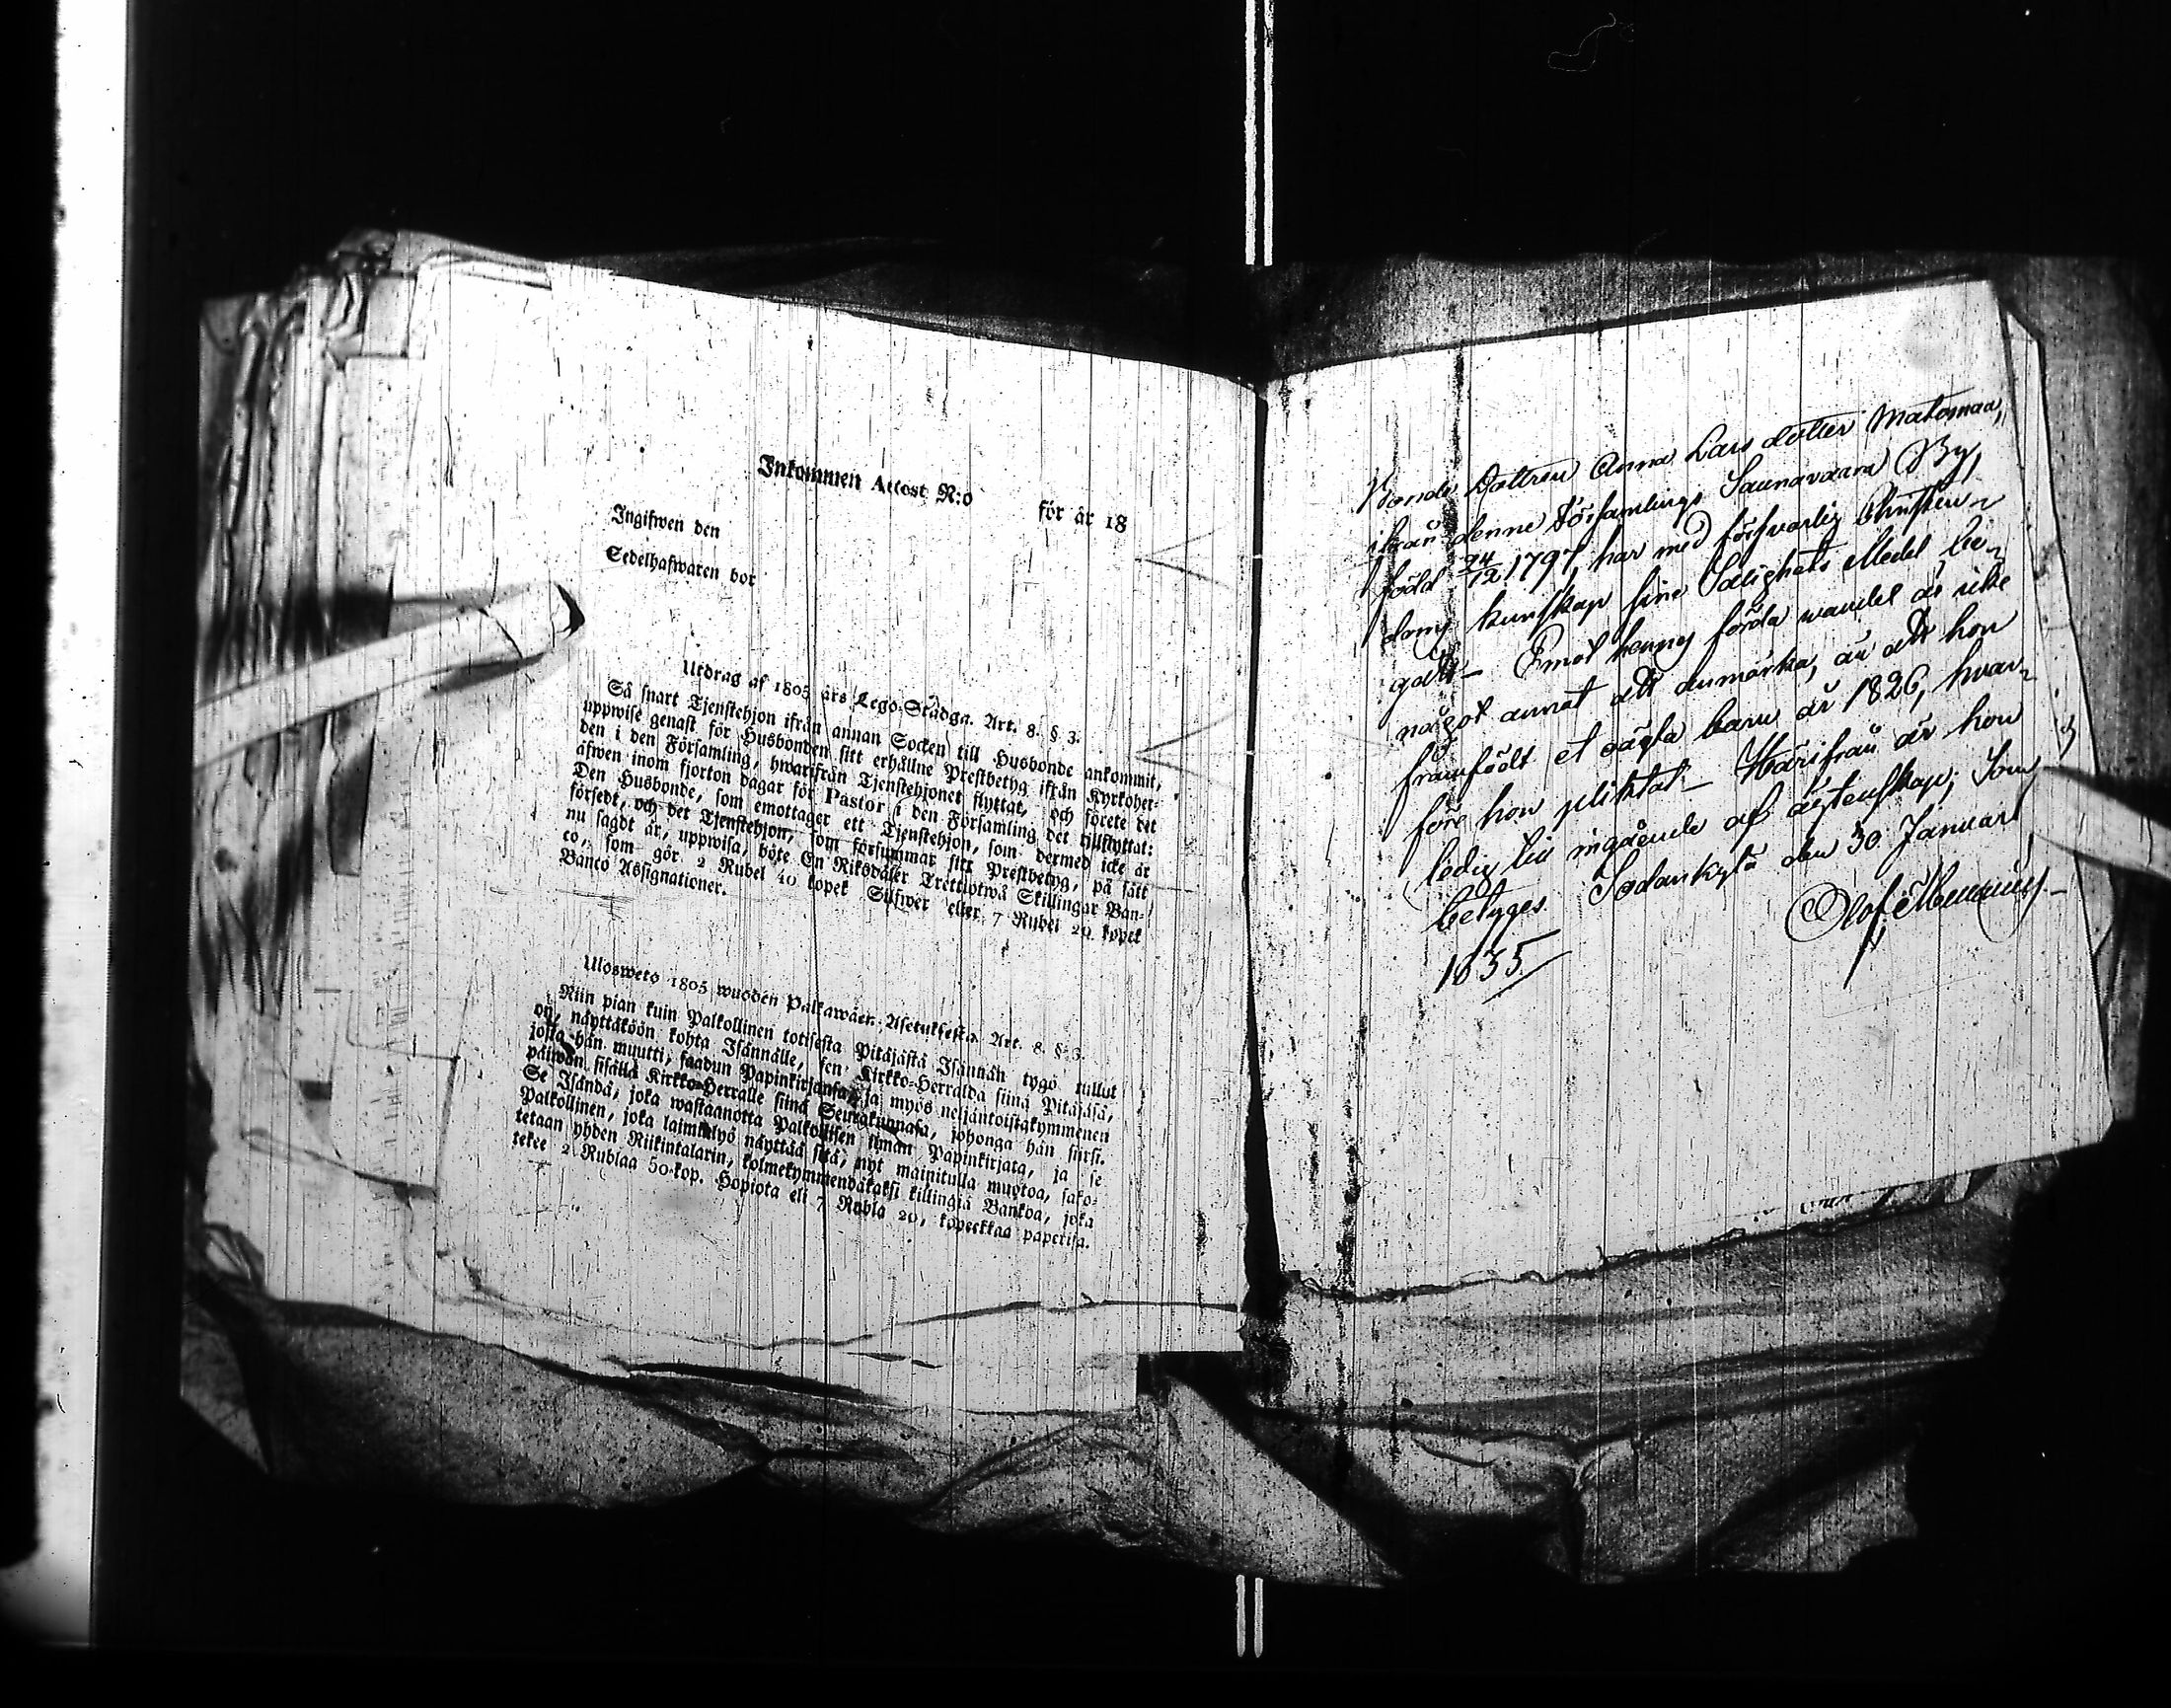 Inkommen Attest N:o för år 18
Ingifwen den
Sedelhafwaren bor
Utdrag af 1805 års Lego-Stadga. Art. 8. § 3.
Så snart Tjenstehjon ifrån annan Socken till Husbonde ankommit,
uppwise genast för Husbonden sitt erhållne Prestbetyg ifrån Kyrkoher-
den i den Församling, hwarifrån Tjenstehjonet flyttat, och förete det
äfwen inom fjorton dagar för Pastor i den Församling det tillflyttat:
Den Husbonde, som emottager ett Tjenstehjon, som dermed icke är
försedt, och det Tjenstehjon, som försummar sitt Prestbetyg, på sätt
nu sagdt är, uppwisa, böte En Riksdaler Trettiotwå Skillingar Ban-
co, som gör 2 Rubel 40 kopek Silfwer eller 7 Rubel 20 kopek
Banco Assignationer.
Ulosweto 1805 wuoden Palkawäen-Asetuksesta. Art. 8. § 3.
Niin pian kuin Palkollinen toisesta Pitäjästä Isännän tygö tullut
on, näyttäköön kohta Isännälle, sen Kirkko-Herralda siinä Pitäjäsä,
josta hän muutti, saadun Papinkirjansa, ja myös neljäntoistakymmenen
päiwän sisällä Kirkko-Herralle siinä Seurakunnasa, johonga hän siirsi.
Se Isändä, joka wastaanotta Palkollisen ilman Papinkirjata, ja se
Palkollinen, joka laiminlyö näyttää sitä, nyt mainitulla muotoa, sako-
tetaan yhden Riikintalarin, kolmekymmendäkaksi killingiä Bankoa, joka
tekee 2 Rublaa 50 kop. Hopiota eli 7 Rubla 20, kopeekkaa paperisa.
Bonde Dottren Anna Lars dotter Matomaa,
ifrån denne Församlings Saunavaara By,
född 24/12 1797, har med försvarlig Christen-
doms kunskap sine Salighets Medel be-
gått – Emot hennes förda wandel är icke
något annat att anmärka, än att hon
framfödt et oägta barn år 1826, hvar-
före hon pliktat – Härifrån är hon
ledig till ingående af ägtenskap; Som
betyges Sodankylä den 30 Januari
1835